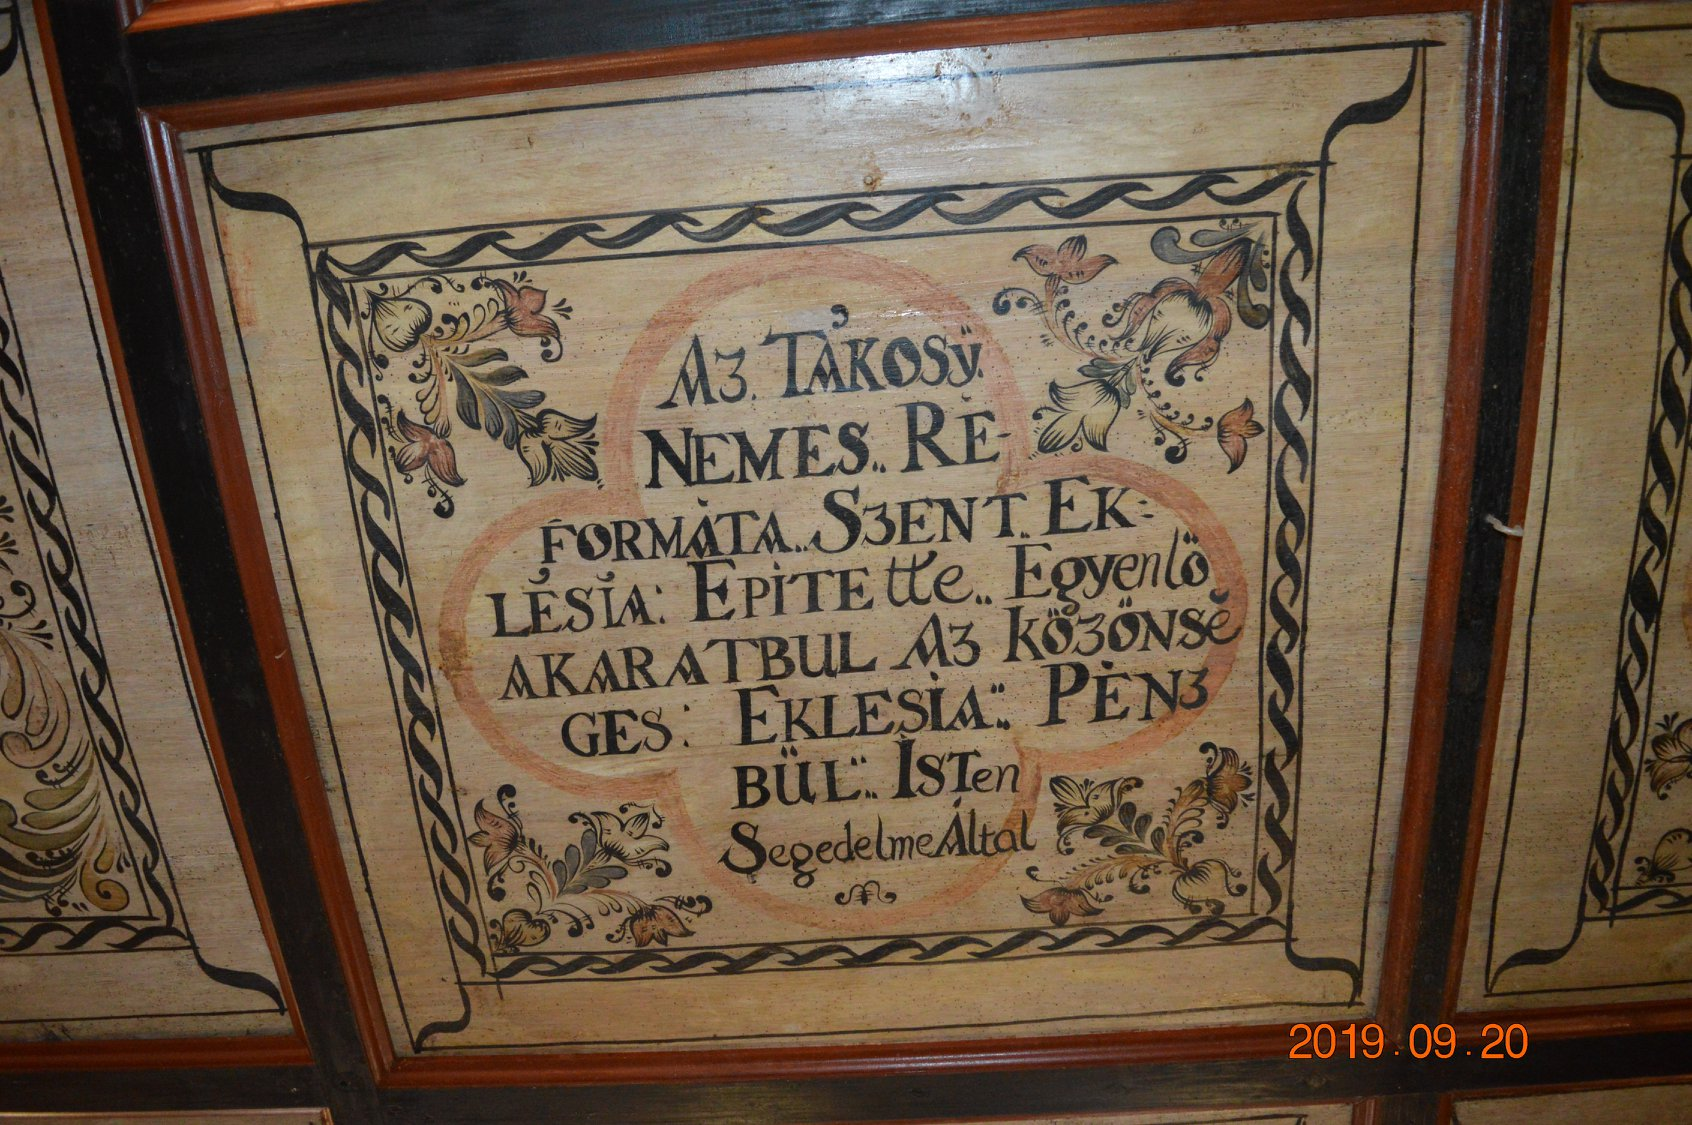 Aʒ. TÁKOSÿ.
NEMES.. RÉ-
FORMÁTA.. SʒENT.. EK:
LÉSIA: EPITEtte.. Egyenlö
AKARATBUL Aʒ KÖʒÖNSÉ
GES: EKLESIA:: PÉNʒ
BÜL::. ISTen
Segedelme Által
2019.09.20